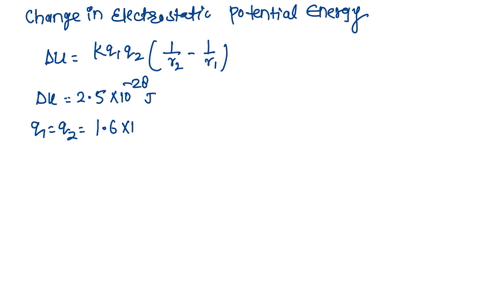 Change in Electrostatic Potential Energy
ΔU = Kq₁q₂ (1/r₂ - 1/r₁)
ΔU = 2.5×10⁻²⁸ J
q₁=q₂= 1.6×1